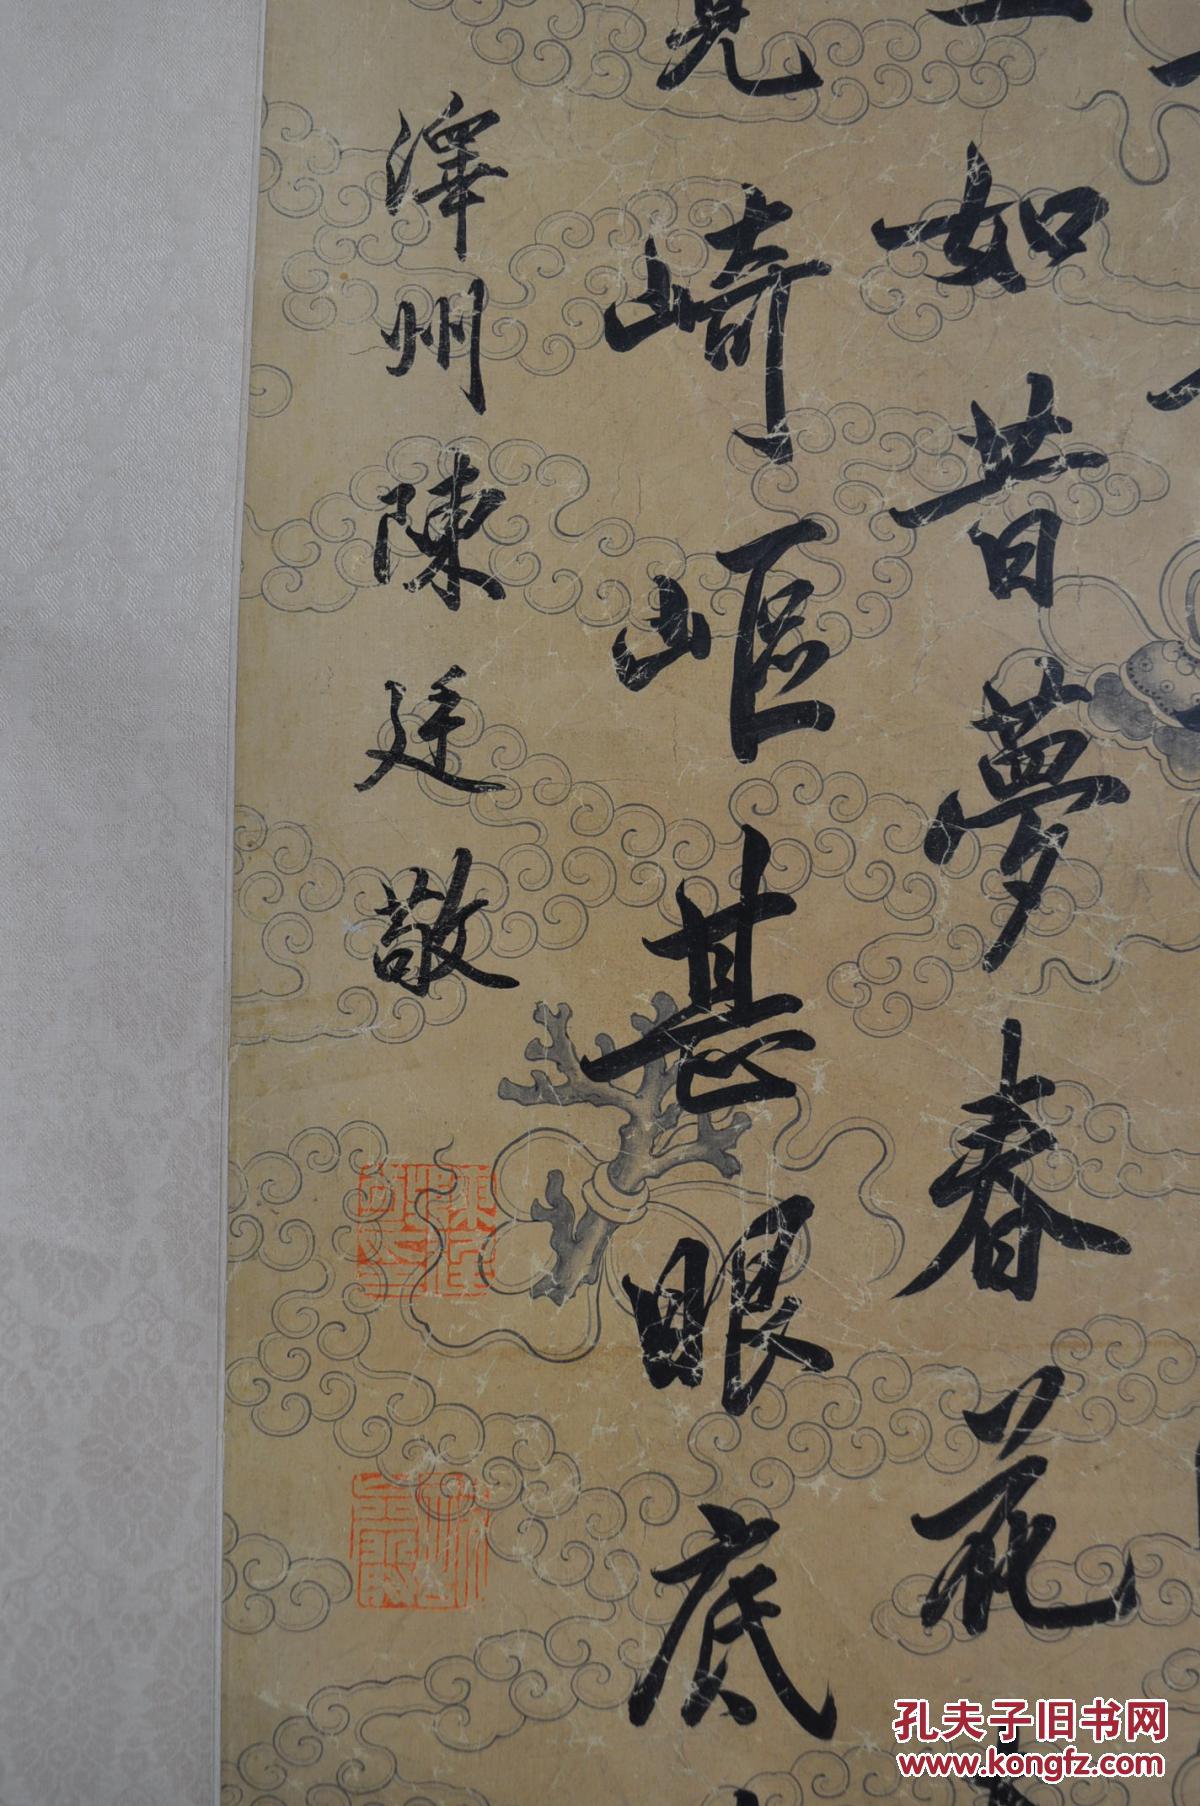 如昔夢春花
崎嶇甚眼底
澤州陳廷敬
孔夫子旧书网
www.kongfz.com